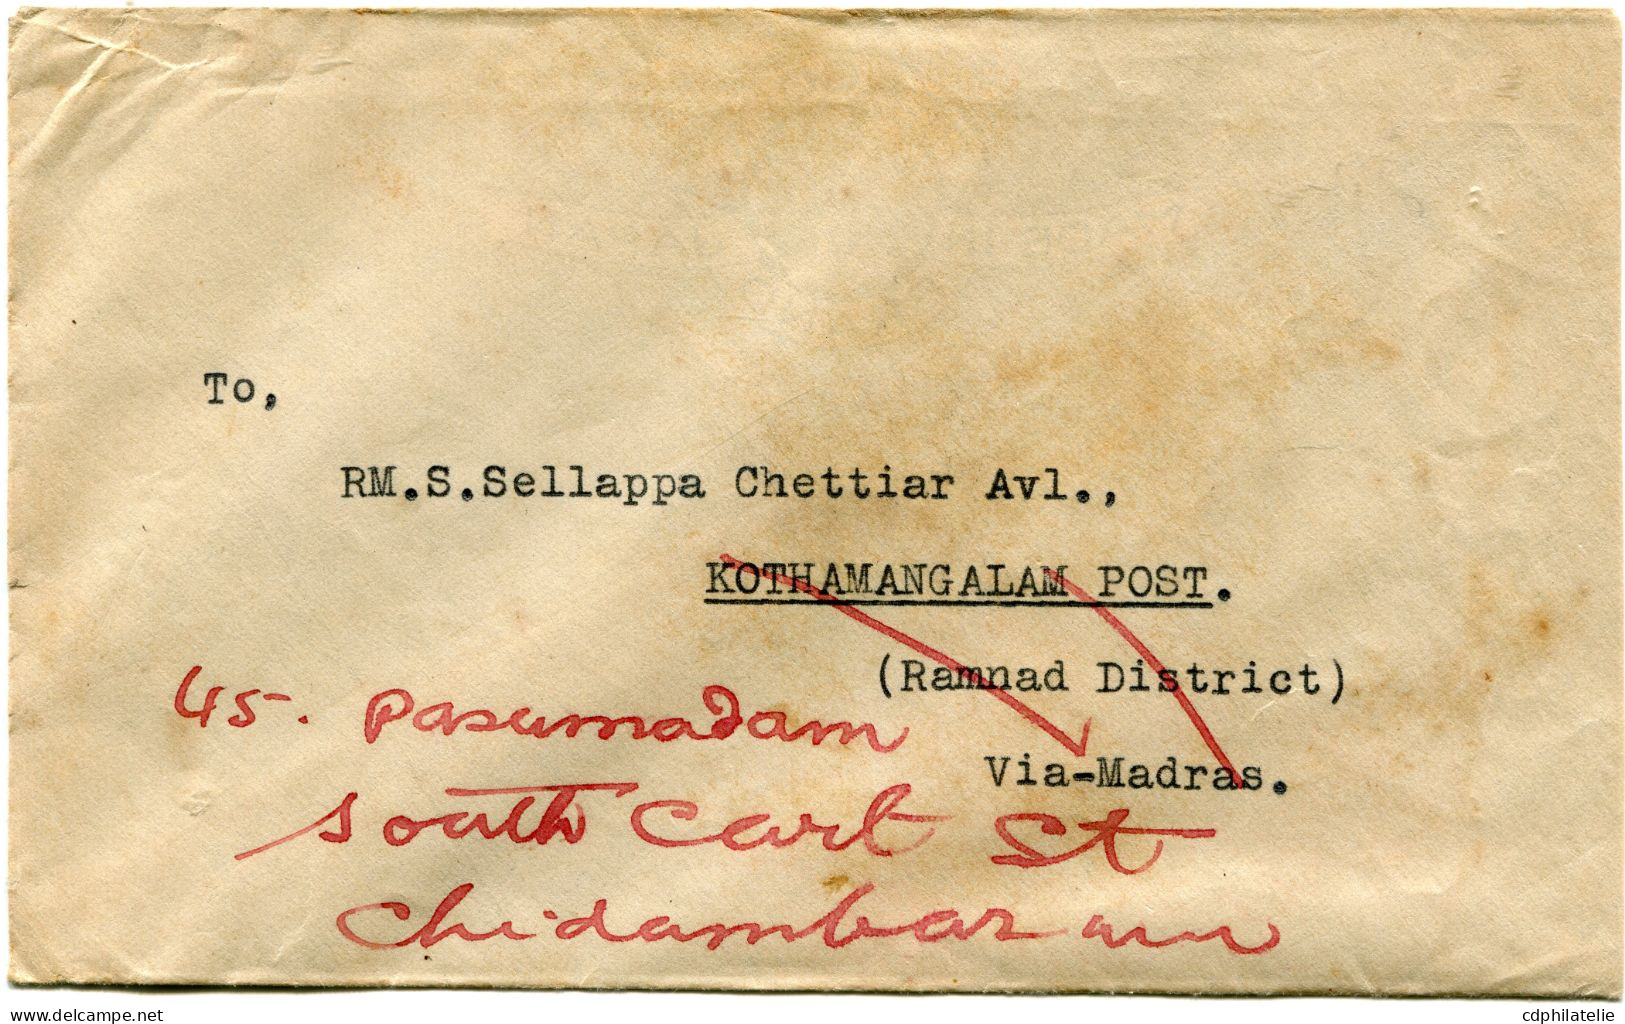 To,
RM.S.Sellappa Chettiar Avl.,
KOTHAMANGALAM POST.
(Ramnad District)
Via-Madras.
45. Pasumadam
South Cart St
Chidambaram
delcampe.net
cdphilatelie